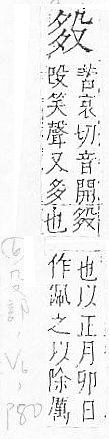 苦哀切音開
笑聲又多也
也以正月卯日
作佩之以除
殳部, V6,
p80